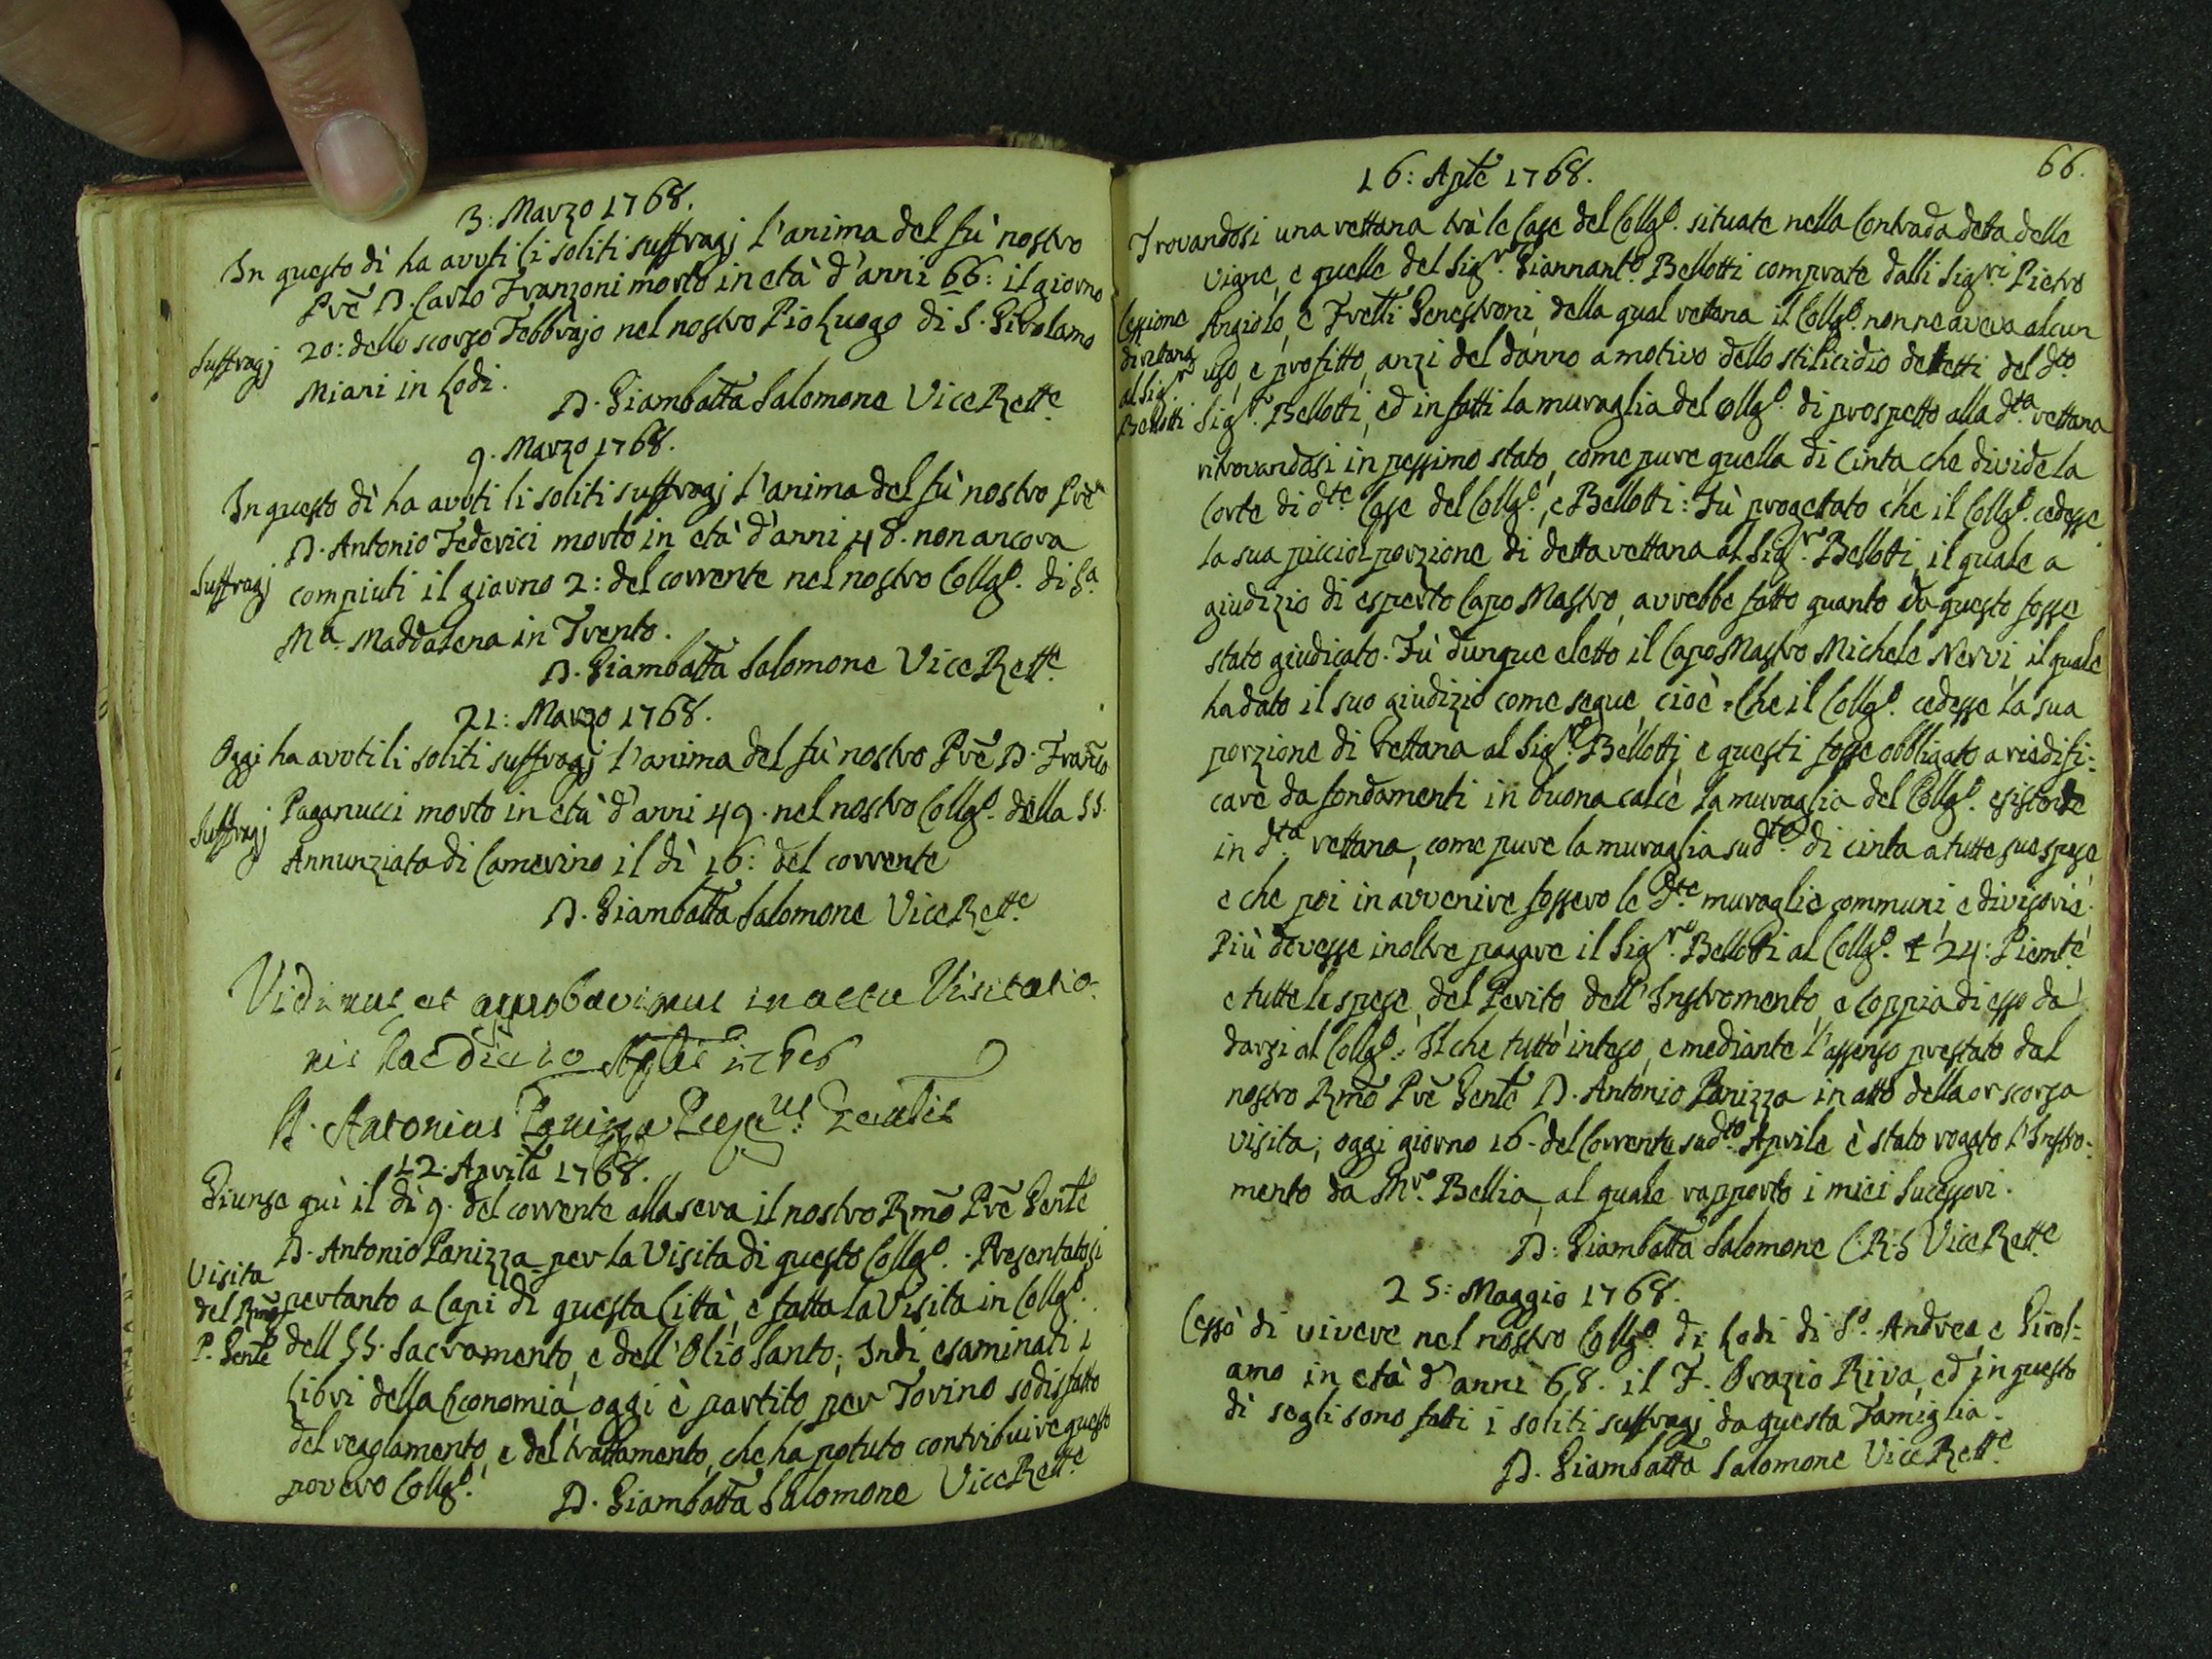 3: Marzo 1768.
In questo dì ha avuti li soliti suffragj l'anima del fù nostro
Prẽ D. Carlo Franzoni morto in età d'anni 66: il giorno
Suffragj 20: dello scorso Febbrajo nel nostro Pio Luogo di S. Girolamo
Miani in Lodi.
D. Giambatta Salomone Vice Rett.e
9. Marzo 1768.
In questo dì ha avuti li soliti suffragj l'anima del fù nostro Prẽ
D. Antonio Federici morto in età d'anni 48. non ancora
Suffragj compiuti il giorno 2: del corrente nel nostro Collg.o di S.a
M.a Maddalena in Trento.
D. Giambatta Salomone Vice Rett.e
21: Marzo 1768.
Oggi ha avuti li soliti suffragj l'anima del fù nostro Prẽ D. Franco
Suffragj Paganucci morto in età d'anni 49. nel nostro Collg.o della SS.
Annunziata di Camerino il dì 16: del corrente
D. Giambatta Salomone Vice Rett.e
Vidimus, et approbavimus in actu Visitatio-
nis hac die 10 Aplis 1768
D. Antonius Panizza
12: Aprile 1768.
Giunse quì il dì 9. del corrente alla sera il nostro Rmõ Prẽ Genle
D. Antonio Panizza per la Visita di questo Collg.o. Presentatosi
Visita
del Rmõ pertanto a Capi di questa Città, e fatta la Visita in Collg.o
P. Genle dell SS. Sacramento, e dell'Olio Santo; Indi esaminati i
Libri della Economia, oggi è partito per Torino sodisfatto
del regolamento, e del trattamento, che ha potuto contribuire questo
povero Collg.o
D. Giambatta Salomone Vice Rett.e
66.
16: Aple 1768.
Trovandosi una rettana trà le Case del Collg.o situate nella Contrada detta delle
Vigne, e quelle del Sig.r Giannant.o Bellotti comprate dalli Sig.ri Pietro
Cessione Angiolo, e Frelli Genestroni, della qual rettana il Collg.o non ne aveva alcun
di retana uso, e profitto, anzi del danno a motivo dello stilicidio de tetti del d.to
al Sig.r
Bellotti Sig.r Bellotti, ed in fatti la muraglia del Collg.o di prospetto alla d.ta rettana
ritrovandosi in pessimo stato, come pure quella di Cinta, che divide la
Corte di d.te Case del Collg.o, e Bellotti: Fù progettato che il Collg.o cedesse
la sua picciol porzione di detta rettana al Sig.r Bellotti, il quale a
giudizio di esperto Capo Mastro, avrebbe fatto quanto da questo fosse
stato giudicato. Fù dunque eletto il Capo Mastro Michele Nervi, il quale
ha dato il suo giudizio come segue, cioè = Che il Collg.o cedesse la sua
porzione di rettana al Sig.re Bellotti, e questi fosse obbligato a riedifi-
care da fondamenti in buona calce la muraglia del Collg.o esistente
in d.ta rettana, come pure la muraglia sud.ta di cinta a tutte sue spese
e che poi in avvenire fossero le d.te muraglie communi, e divisorie.
Più dovesse inoltre pagare il Sig.re Bellotti al Collg.o £ 24: Piemte
e tutte le spese, del Perito, dell'Instromento, e Coppia di esso da
darsi al Collg.o: Il che tutto inteso, e mediante l'assenso prestato dal
nostro Rmõ Prẽ Genle D. Antonio Panizza in atto della or scorsa
visita; oggi giorno 16. del Corrente sud.to Aprile è stato rogato l'Instro-
mento da Mr. Bellia, al quale rapporto i miei Successori.
D: Giambatta Salomone C.R.S Vice Rett.e
25: Maggio 1768.
Cessò di vivere nel nostro Collg.o di Lodi di S. Andrea, e Girol-
amo in età d'anni 68. il F. Orazio Riva, ed in questo
dì segli sono fatti i soliti suffragj da questa Famiglia.
D. Giambatta Salomone Vice Rett.e